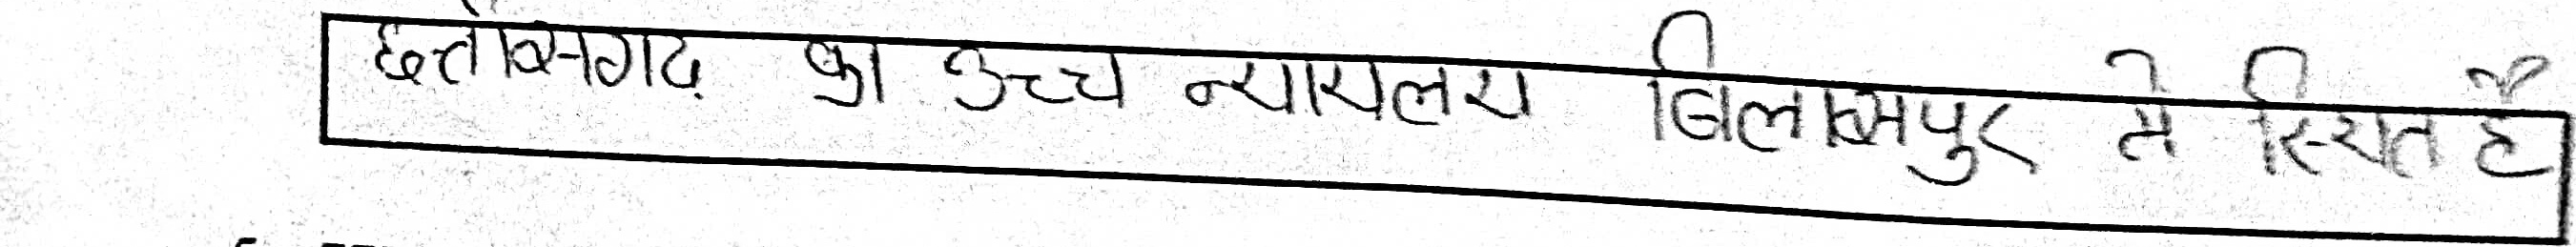 छत्तीसगढ़ का उच्च न्यायलय बिलासपुर मे स्थित है